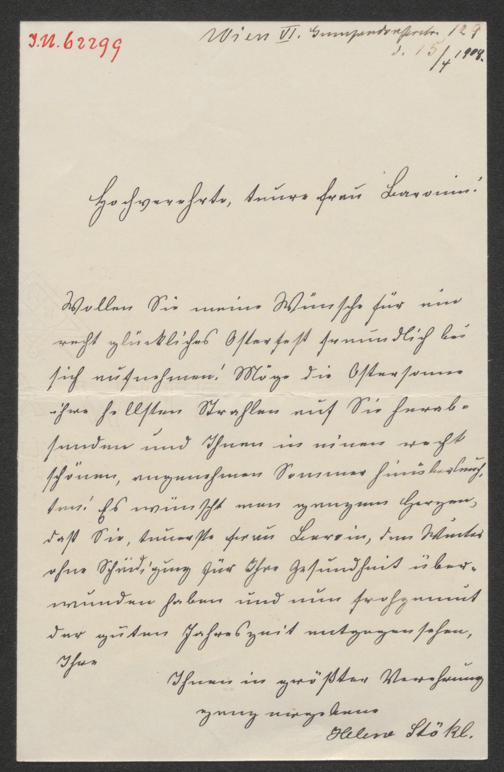 J.N. 62299
Wien VI. Gumpendorferstr. 129
d. 15/4 1908.
Hochverehrte, teure Frau Baronin!
Wollen Sie meine Wünsche für ein
recht glückliches Osterfest freundlich bei
sich aufnehmen! Möge die Ostersonne
ihre hellsten Strahlen auf Sie herab-
senden und Ihnen in einen recht
schönen, angenehmen Sommer hinüberleuch-
ten! Es wünscht von ganzem Herzen,
daß Sie, teuerste Frau Baronin, den Winter
ohne Schädigung für Ihre Gesundheit über-
wunden haben und nun frohgemut
der guten Jahreszeit entgegensehen,
Ihre
Ihnen in größter Verehrung
ganz ergebene
Helene Stökl.